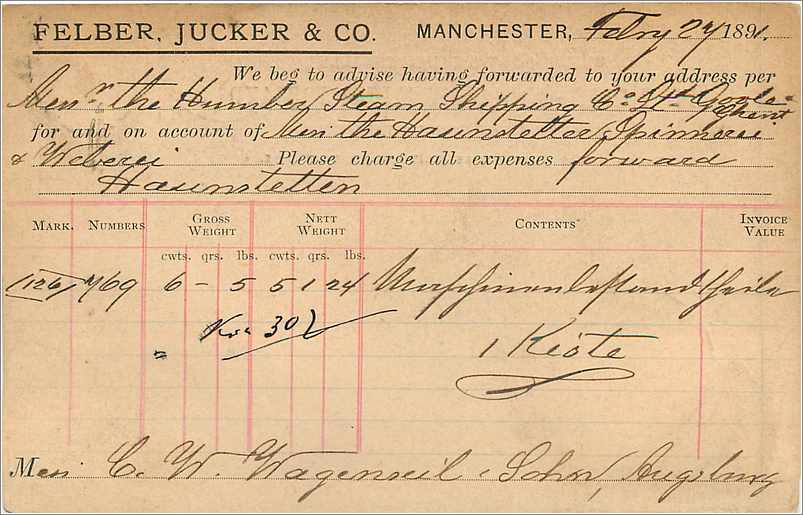 FELBER, JUCKER & CO. MANCHESTER, Febry 27 1891.
We beg to advise having forwarded to your address per
Messrs the Humber Steam Shipping Co Ltd Goole-
for and on account of Mess the Haunstetter Spinnerei
& Weberei Please charge all expenses forward
Haunstetten
MARK. NUMBERS GROSS WEIGHT NETT WEIGHT CONTENTS INVOICE VALUE
cwts. qrs. lbs. cwts. qrs. lbs.
(126) 7/69 6 - 5 5 1 24 Maschinenbestandtheile
302
1 Kiste
Mess C. W. Wagenseil Sohn, Augsburg